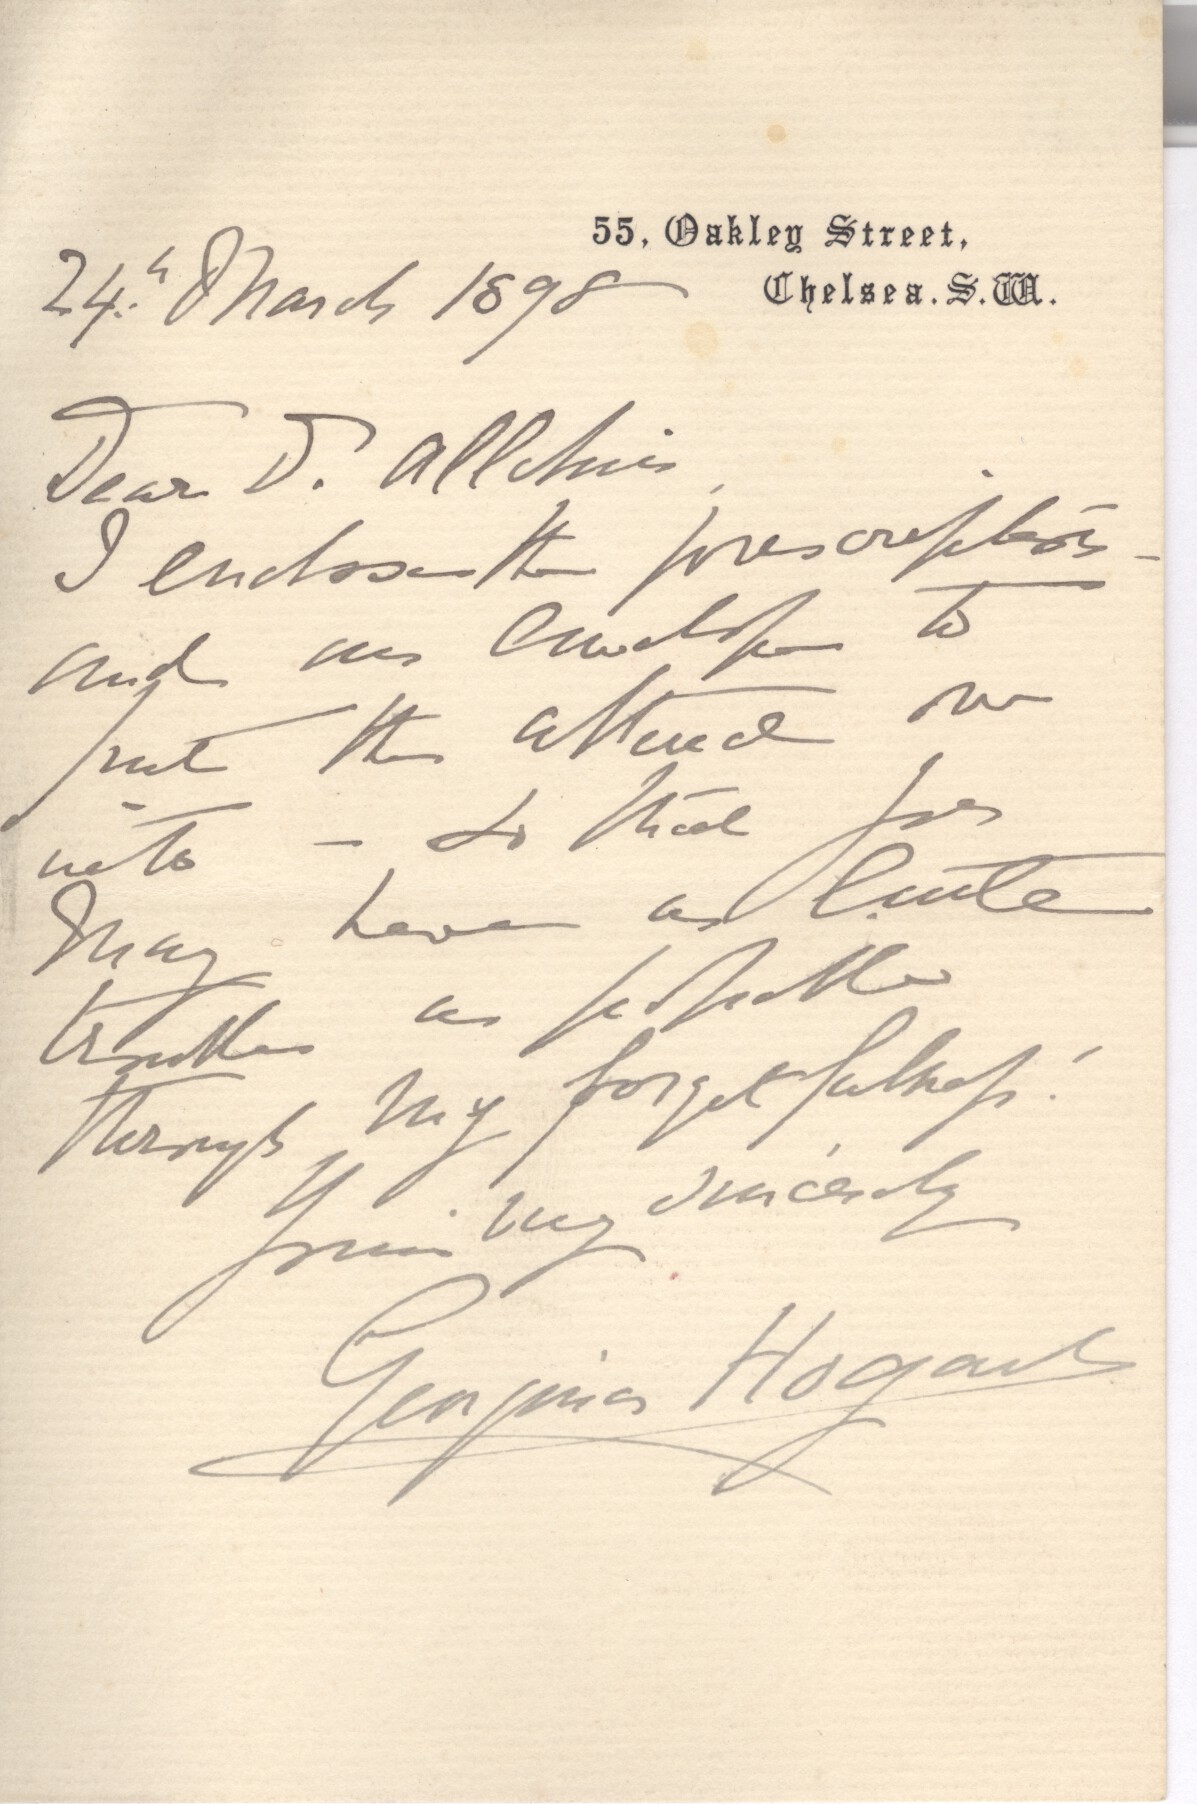 55, Oakley Street,
Chelsea. S.W.
24.th March 1898
Dear D. Allchin,
I enclose the prescriptions –
and an envelope to
put the altered one
into – so that you
may have as little
trouble as possible
through my forgetfulness!
Yours very sincerely
Georgina Hogarth